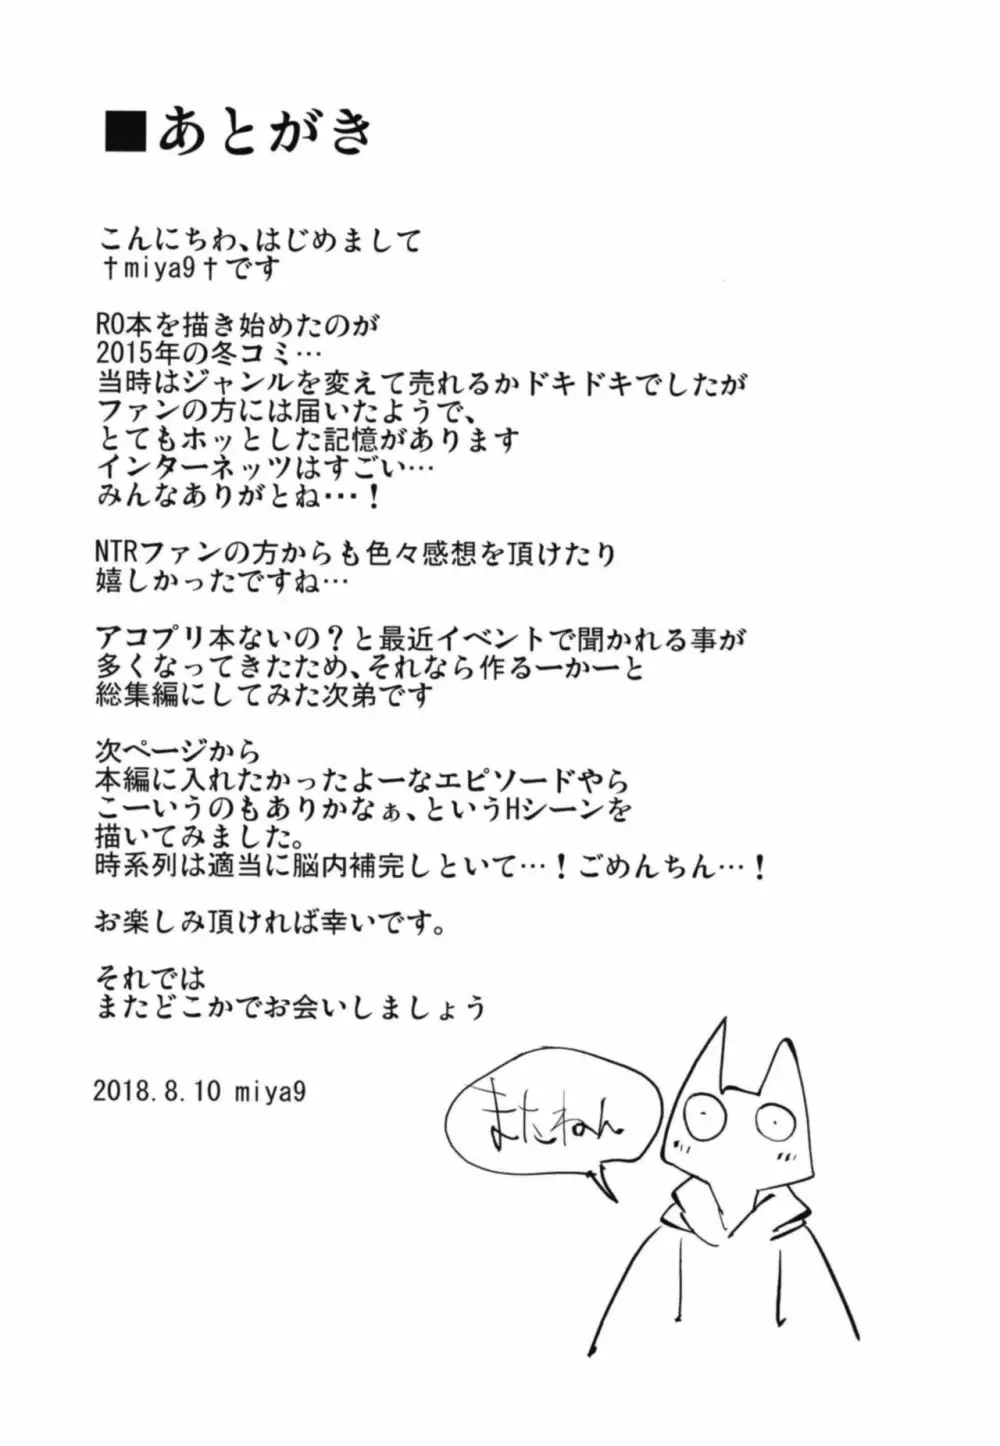 ■あとがき
こんにちわ、はじめまして
†miya9†です
RO本を描き始めたのが
2015年の冬コミ…
当時はジャンルを変えて売れるかドキドキでしたが
ファンの方には届いたようで、
とてもホッとした記憶があります
インターネッツはすごい…
みんなありがとね・・・！
NTRファンの方からも色々感想を頂けたり
嬉しかったですね…
アコプリ本ないの？と最近イベントで聞かれる事が
多くなってきたため、それなら作るーかーと
総集編にしてみた次弟です
次ページから
本編に入れたかったよーなエピソードやら
こーいうのもありかなぁ、というHシーンを
描いてみました。
時系列は適当に脳内補完しといて…！ごめんちん…！
お楽しみ頂ければ幸いです。
それでは
またどこかでお会いしましょう
2018.8.10 miya9
またねん